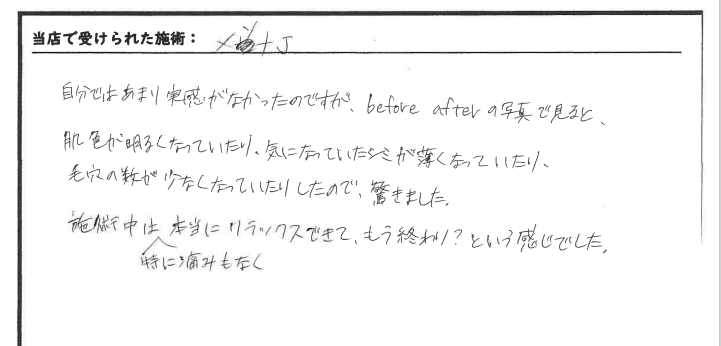 当店で受けられた施術：
自分ではあまり実感がなかったのですが、before afterの写真で見ると、
肌色が明るくなっていたり、気になっていたシミが薄くなっていたり、
毛穴の数が少なくなっていたりしたので、驚きました。
施術中は本当にリラックスできて、もう終わり？という感じでした。
特に痛みもなく